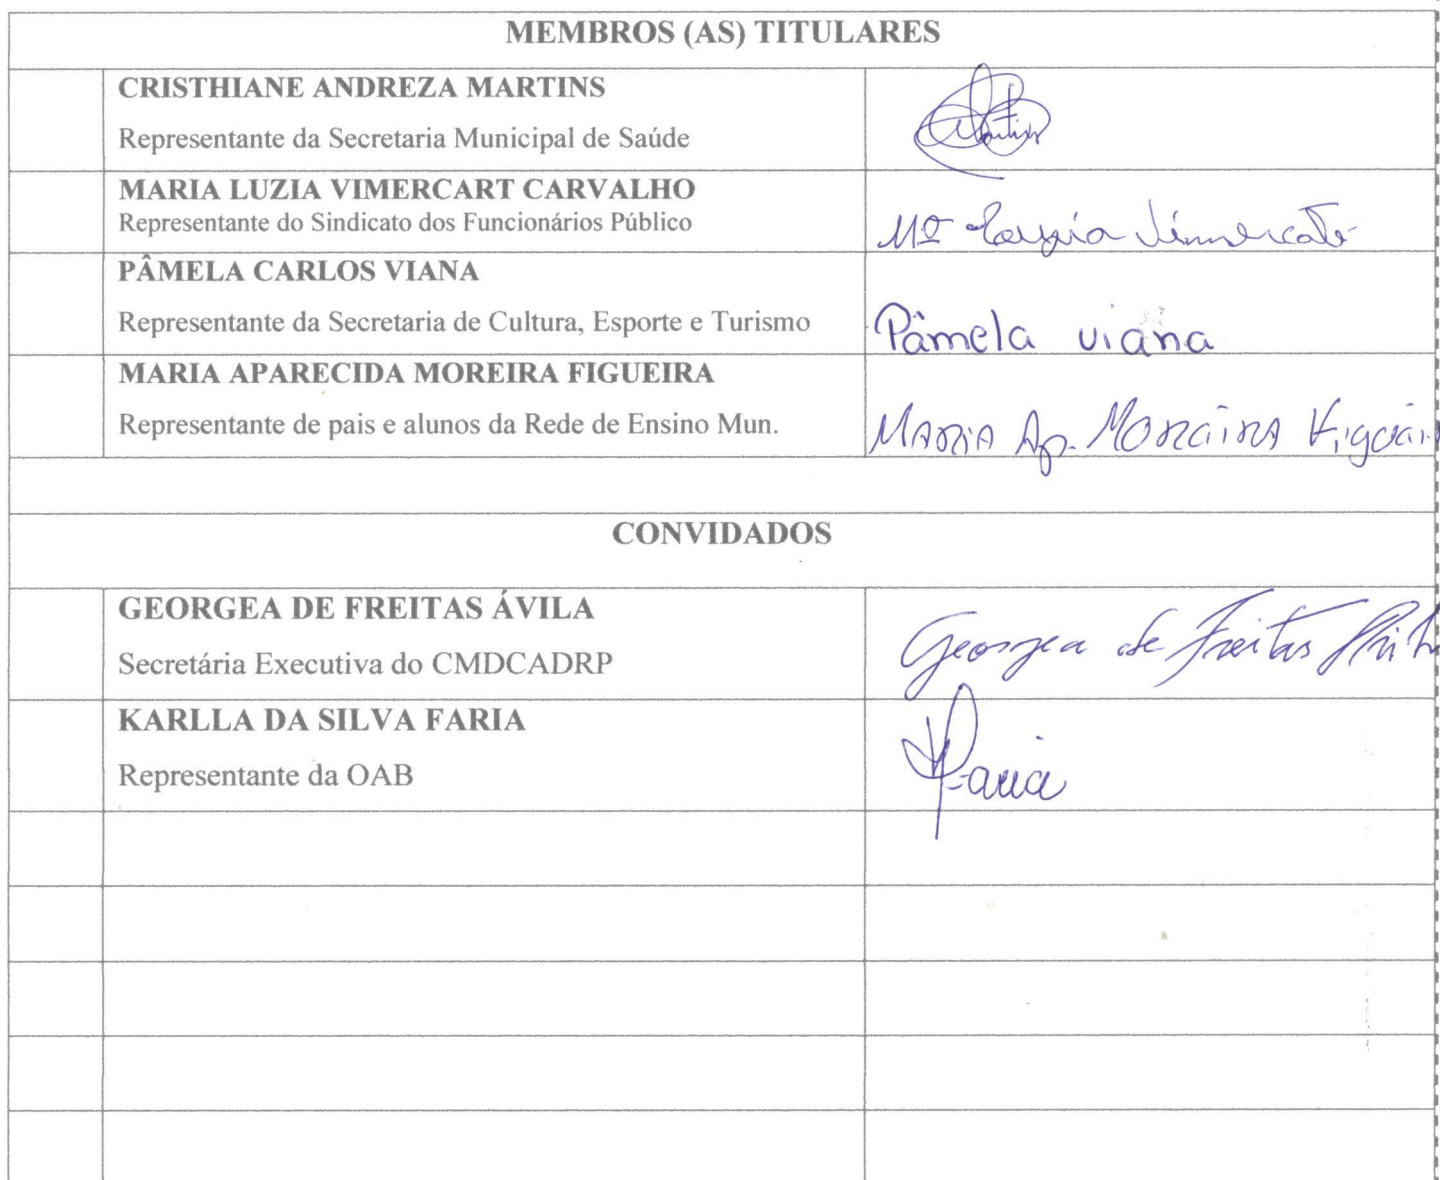 MEMBROS (AS) TITULARES
CRISTHIANE ANDREZA MARTINS
Representante da Secretaria Municipal de Saúde
MARIA LUZIA VIMERCART CARVALHO
Representante do Sindicato dos Funcionários Público
Mª Luzia Vimercati
PÂMELA CARLOS VIANA
Representante da Secretaria de Cultura, Esporte e Turismo
Pâmela viana
MARIA APARECIDA MOREIRA FIGUEIRA
Representante de pais e alunos da Rede de Ensino Mun.
Maria Ap. Moreira Figueir
CONVIDADOS
GEORGEA DE FREITAS ÁVILA
Secretária Executiva do CMDCADRP
Georgea de Freitas
KARLLA DA SILVA FARIA
Representante da OAB
Faria